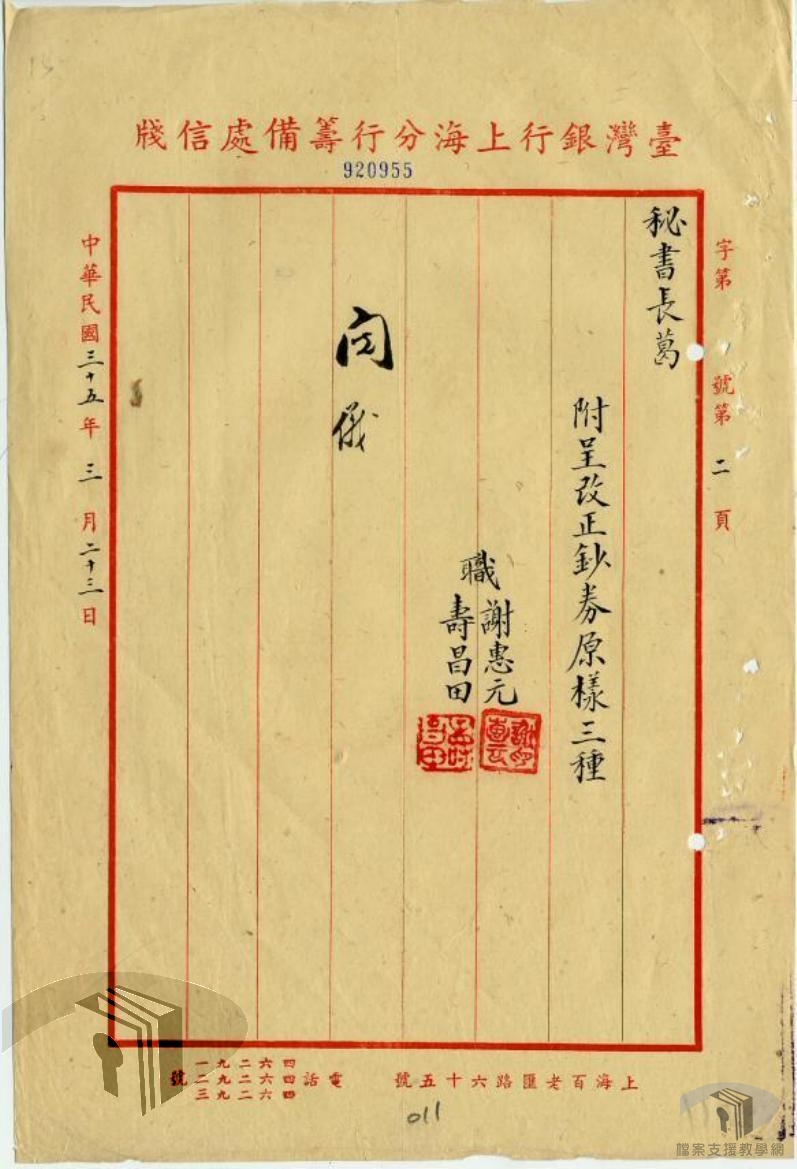 臺灣銀行上海分行籌備處信牋
920955
字第 號第二頁
秘書長葛
附呈改正鈔券原樣三種
職 謝惠元
壽昌田
中華民國三十五年三月二十三日
上海百老匯路六十五號
電話 四六二九一 四六二九二 四六二九三 號
011
檔案支援教學網